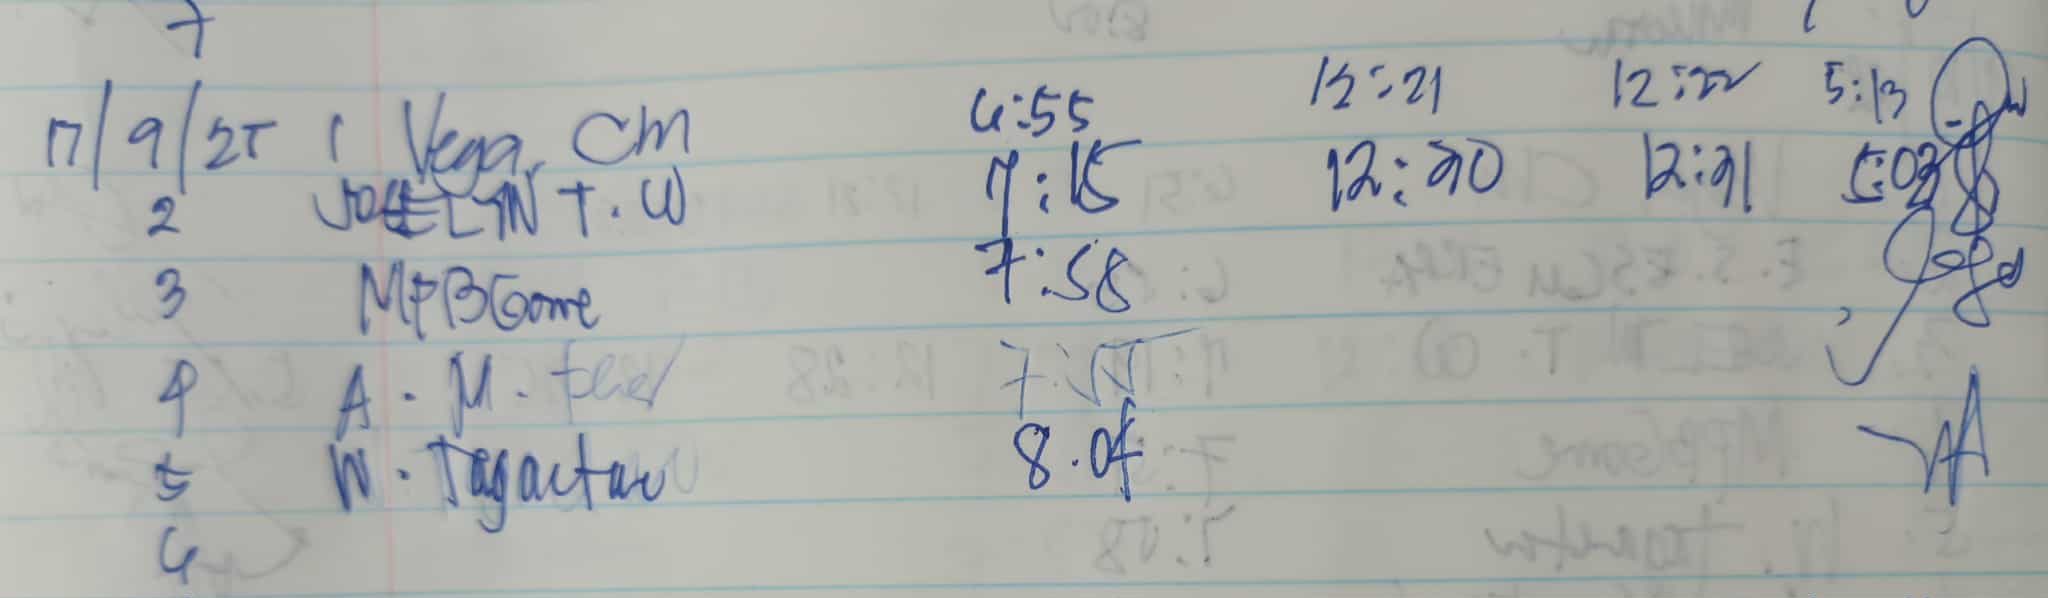 7
17/9/25 1 Vega, CM 6:55 12:21 12:22 5:13
2 JOELYN T. W 7:15 12:20 12:21 5:02
3 MPBGome 7:58
4 A. M. 7:
5 W. Tagactac 8.04
6